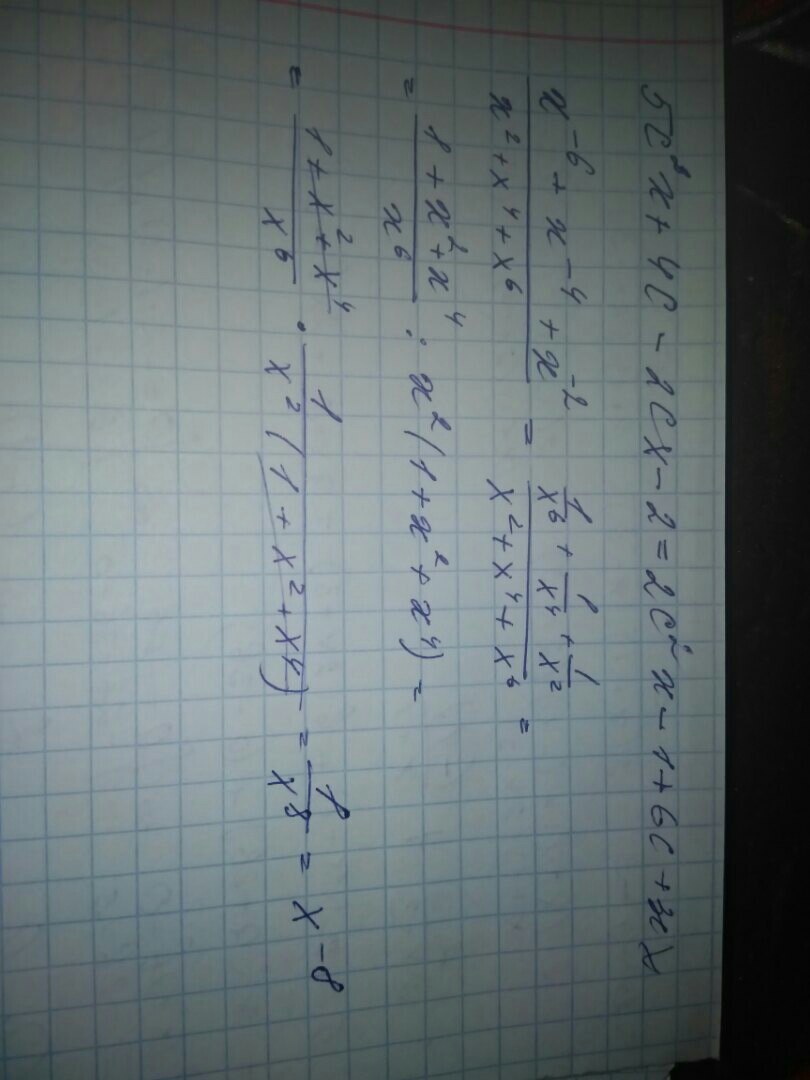 5c²x + 4c - 2cx - 2 = 2c²x - 1 + 6c + xx
(x⁻⁶ + x⁻⁴ + x⁻²)/(x² + x⁴ + x⁶) = (1/x⁶ + 1/x⁴ + 1/x²)/(x² + x⁴ + x⁶) =
= (1 + x² + x⁴)/x⁶ : x²(1 + x² + x⁴) =
= (1 + x² + x⁴)/x⁶ · 1/(x²(1 + x² + x⁴)) = 1/x⁸ = x⁻⁸